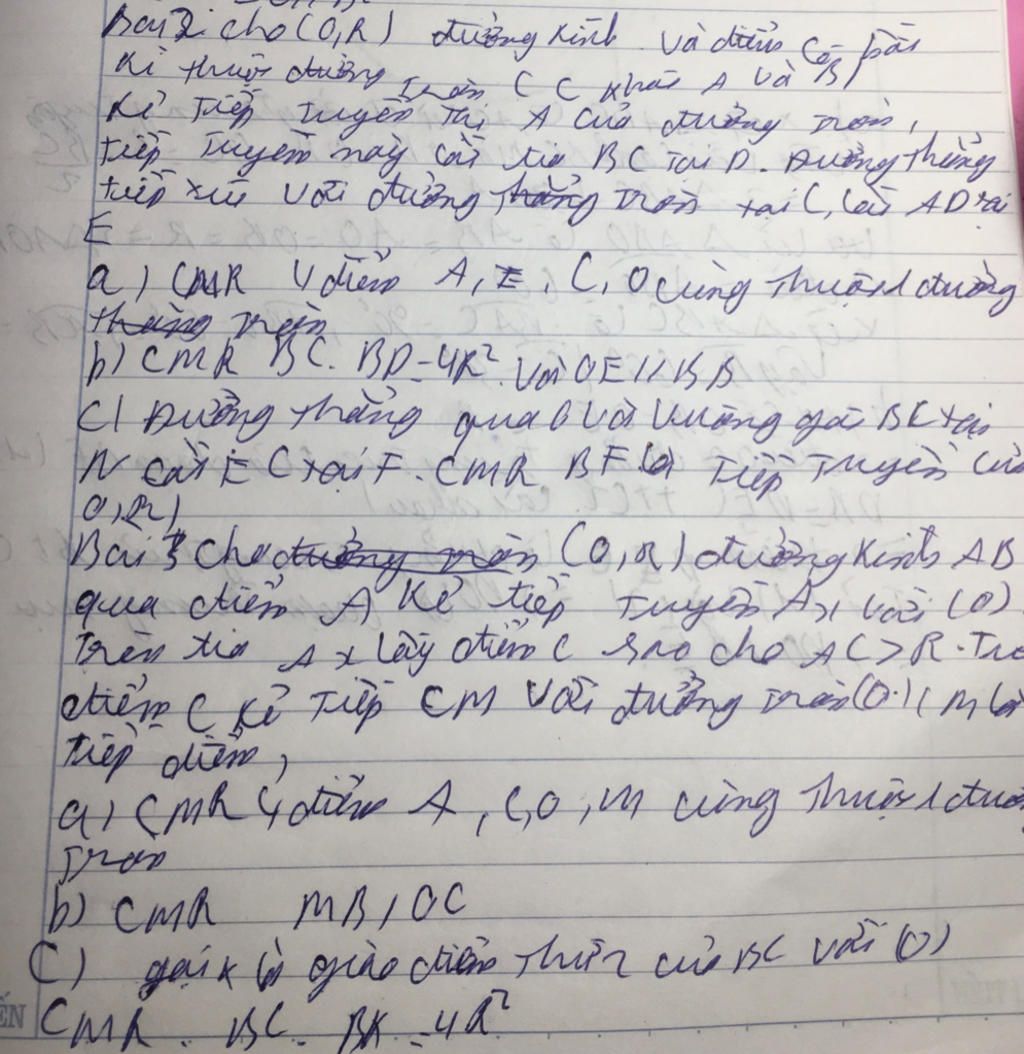 Bài 2 cho (O,R) đường kính và điểm C bất
kì thuộc đường tròn ( C khác A và B)
kẻ tiếp tuyến tại A của đường tròn,
tiếp tuyến này cắt tia BC tại D. Đường thẳng
tiếp xúc với đường thẳng tròn tại C, cắt AD tại
E
a) CMR 4 điểm A, E, C, O cùng thuộc 1 đường
thẳng tròn
b) CMR BC. BD = 4R² và OE // BD
c) Đường thẳng qua O và vuông góc BC tại
N cắt EC tại F. CMR BF là tiếp tuyến của
O,R)
Bài 3 Cho đường tròn (O,R) đường kính AB
qua điểm A kẻ tiếp tuyến Ax với (O)
Trên tia Ax lấy điểm C sao cho AC > R. Từ
điểm C kẻ tiếp CM với đường tròn (O) ( M là
tiếp điểm)
a) CMR 4 điểm A, C, O, M cùng thuộc 1 đườ
tròn
b) CMR MB // OC
c) gọi K là giao điểm thứ 2 của BC với (O)
CMR. BC. BK = 4R²